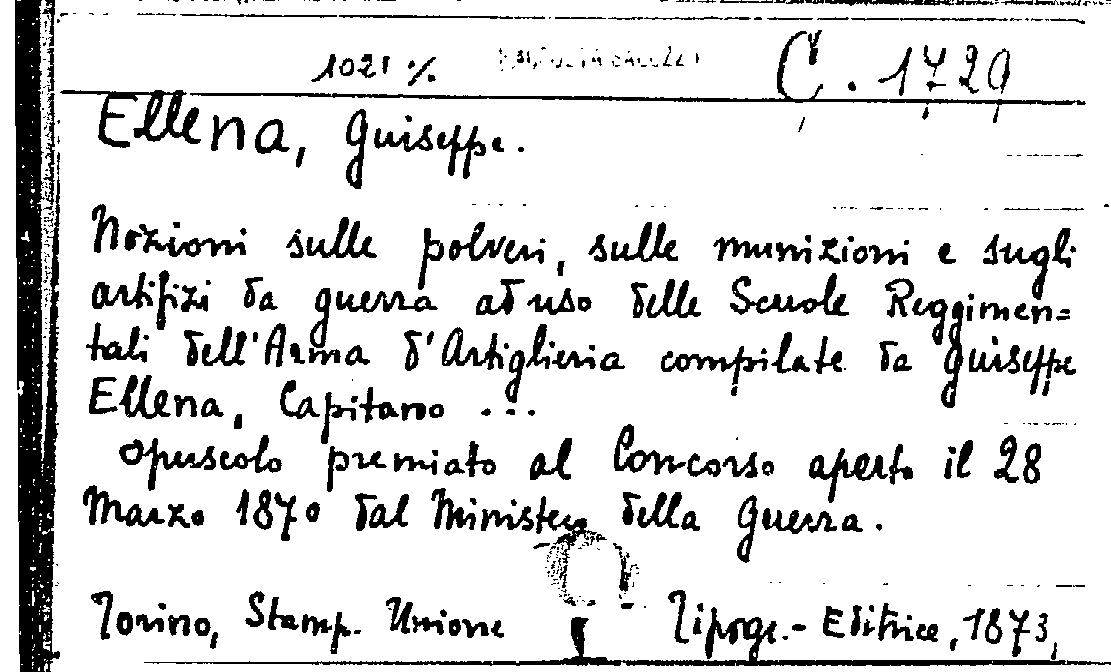 1021 % C. 1729
Ellena, Guiseppe.
Nozioni sulle polveri, sulle munizioni e sugli
artifizi da guerra ad uso delle Scuole Reggimen=
tali dell'Arma d'Artiglieria compilate da Guiseppe
Ellena, Capitano ...
Opuscolo premiato al Concorso aperto il 28
Marzo 1870 dal Ministero della Guerra.
Torino, Stamp. Unione Tipogr.- Editrice, 1873,